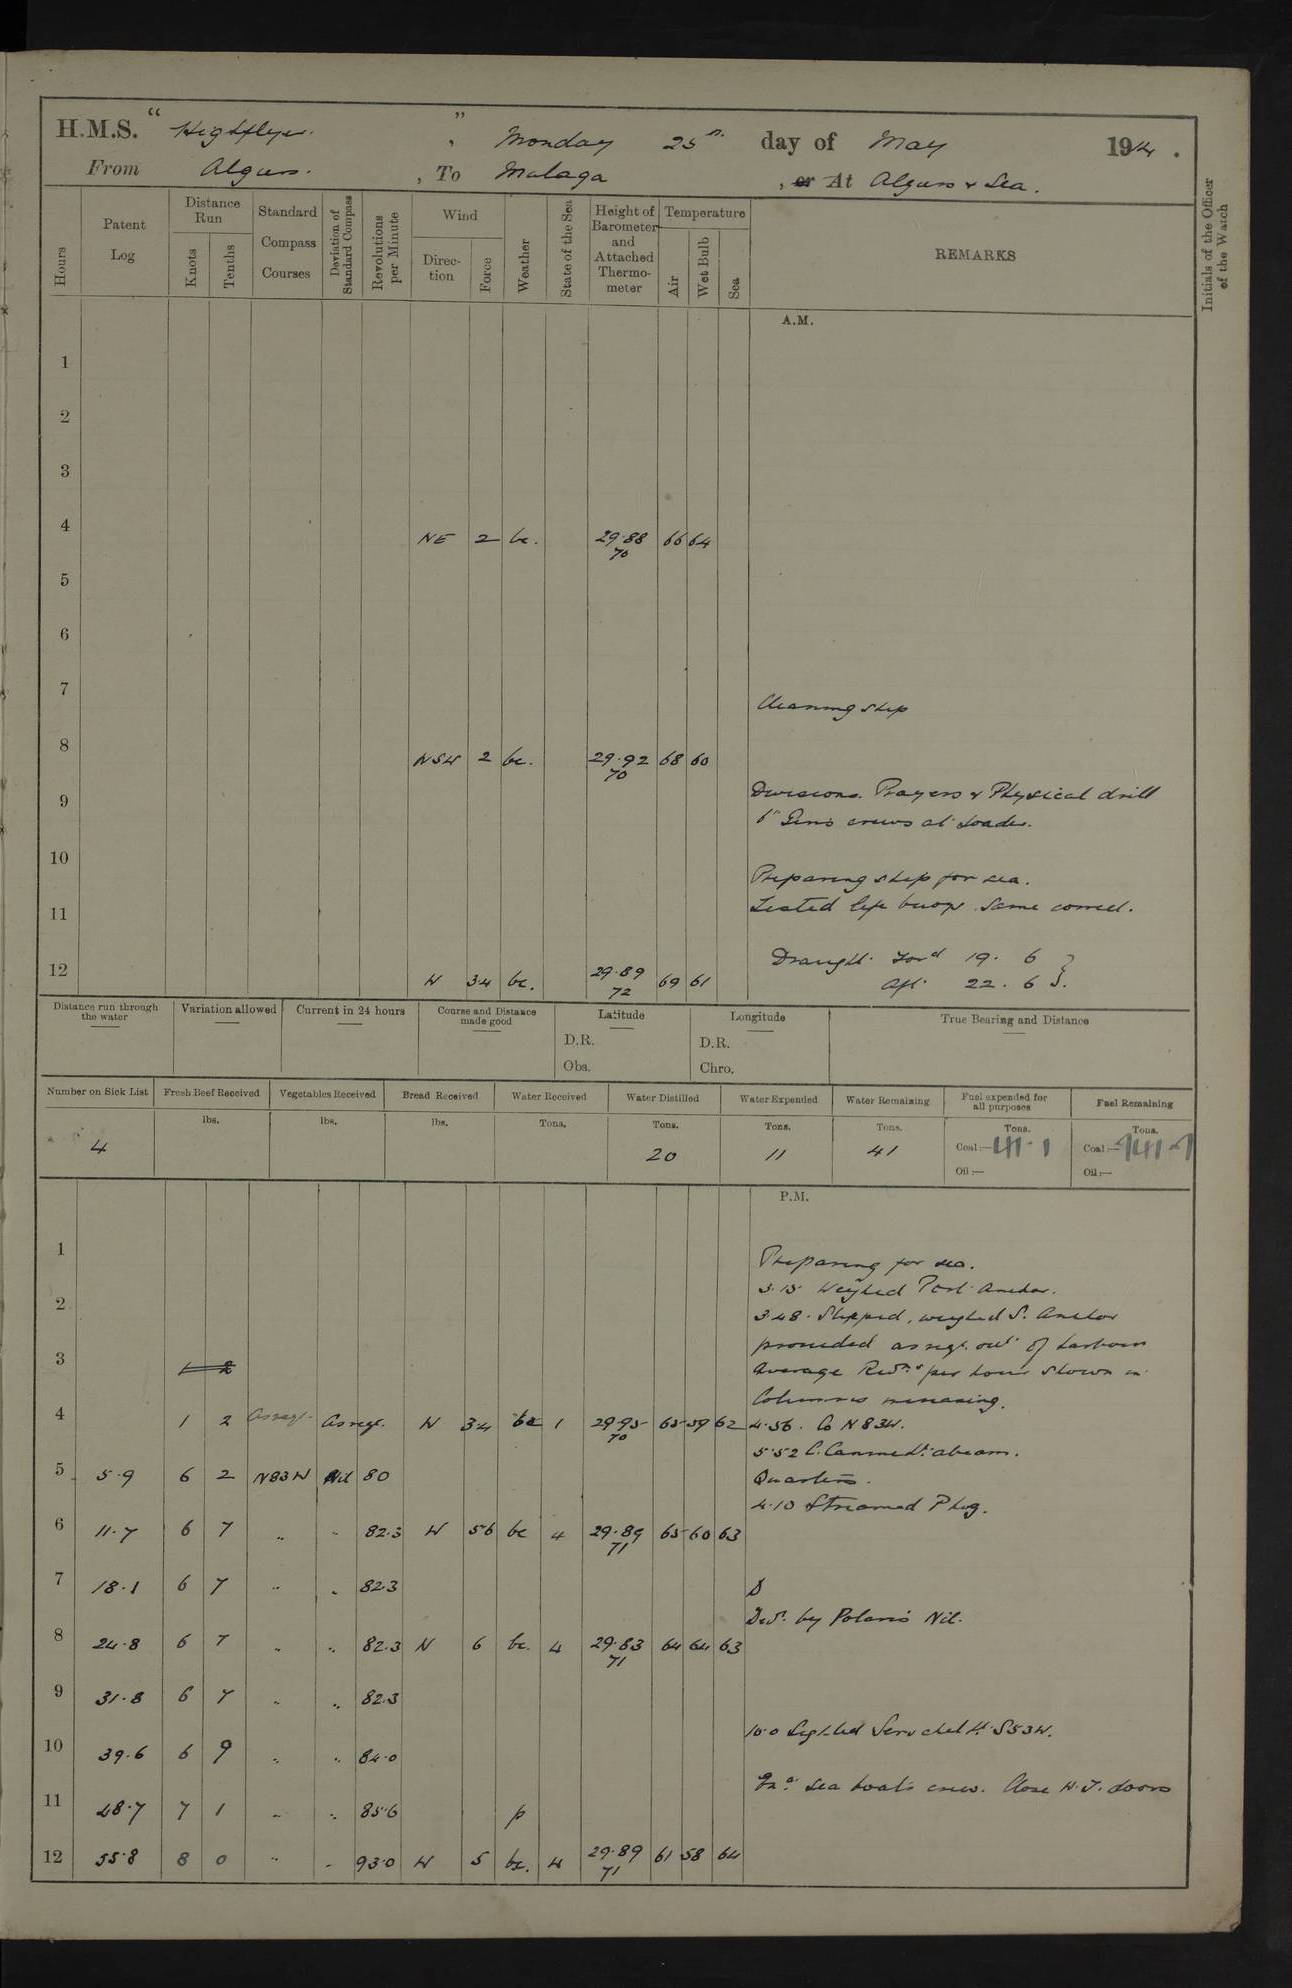 H.M.S. "Highflyer." , Monday 25th day of May 1914.
From Algiers. , To Malaga , or At Algiers & Sea.
Hours
Patent Log
Distance Run
Knots
Tenths
Standard Compass Courses
Deviation of Standard Compass
Revolutions per Minute
Wind
Direction
Force
Weather
State of the Sea
Height of Barometer and Attached Thermometer
Temperature
Air
Wet Bulb
Sea
REMARKS
Initials of the Officer of the Watch
A.M.
1
2
3
4 NE 2 bc. 29.88 70 66 64
5
6
7
Cleaning ship
8 NSW 2 bc. 29.92 70 68 60
9 Divisions. Prayers & Physical drill
6" Guns crews at Loader.
10
Preparing ship for sea.
11 Tested life buoys. Same correct.
12 W 3.4 bc. 29.89 72 69 61
Draught. For'd 19. 6
Aft. 22. 6
Distance run through the water
Variation allowed
Current in 24 hours
Course and Distance made good
Latitude
D.R.
Obs.
Longitude
D.R.
Chro.
True Bearing and Distance
Number on Sick List
4
Fresh Beef Received
lbs.
Vegetables Received
lbs.
Bread Received
lbs.
Water Received
Tons.
Water Distilled
Tons.
20
Water Expended
Tons.
11
Water Remaining
Tons.
41
Fuel expended for all purposes
Tons.
Coal:— 41.1
Oil:—
Fuel Remaining
Tons.
Coal:—
Oil:—
P.M.
1
Preparing for sea.
3.15 Weighed Port Anchor.
2
3.48. Slipped, weighed S. Anchor
proceeded as reqe. out of harbour
3 1 2
Average Revns per hour shown in
Columns
4 1 2 As reqe. As reqe. W 3.4 bc 1 29.95 70 65 59 62
4.56. Co N83W.
5.52 C. Caxine Lt. abeam.
5 5.9 6 2 N83W Nil 80
Quarters.
4.10 Streamed P Log.
6 11.7 6 7 " " 82.3 W 56 bc 4 29.89 71 65 60 63
7 18.1 6 7 " " 82.3
Devn. by Polaris Nil.
8 24.8 6 7 " " 82.3 N 6 bc. 4 29.83 71 64 64 63
9 31.8 6 7 " " 82.3
10.0 Sighted Lt. S53W.
10 39.6 6 9 " " 84.0
Exd. sea boats crew. Close W.T. doors
11 48.7 7 1 " " 85.6 p
12 55.8 8 0 " " 93.0 W 5 bc. 4 29.89 71 61 58 64